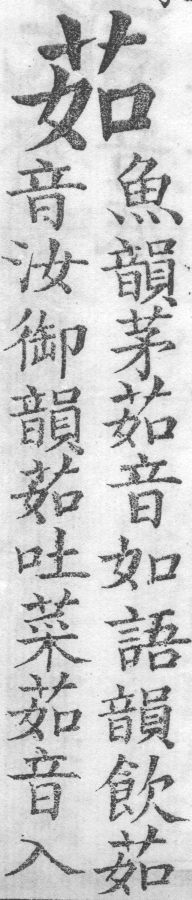 茹
魚韻茅茹音如語韻飲茹
音汝御韻茹吐菜茹音入